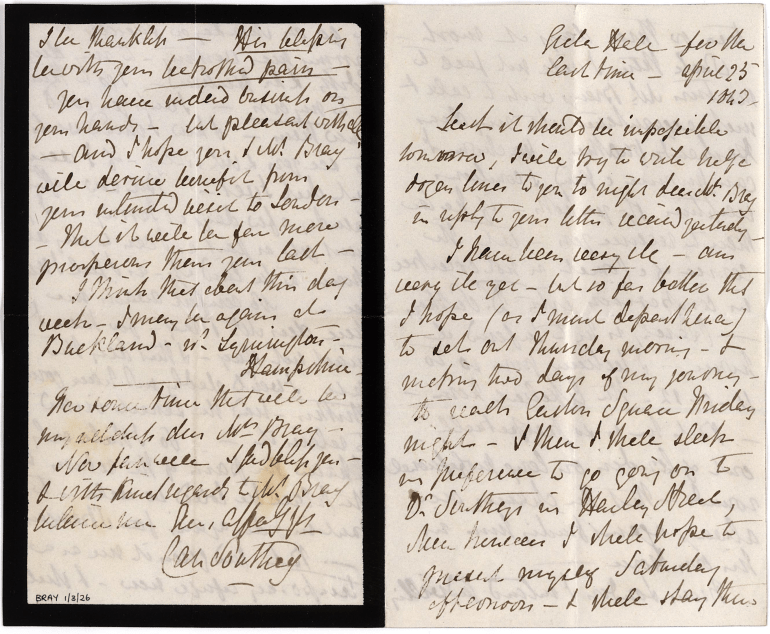 I be thankful — His blessing
be with your betrothed pair —
you have indeed business on
your hands — but pleasant withal
— and I hope you & Mr Bray
will derive benefit from
your intended visit to London —
— That it will be far more
prosperous than your last —
I think that about this day
week — I may be again at
Buckland — nr Lymington —
Hampshire —
For some time that will be
my address dear Mrs Bray —
Now farewell & God bless you —
& with kind regards to Mr Bray
believe me Yrs affectly
Car Southey
BRAY 1/8/26
Greta Hall — for the
last time — april 25
Lest it should be impossible
tomorrow, I will try to write half a
dozen lines to you to night dear Mrs Bray
in reply to your letter received yesterday —
I have been very ill — am
very ill yet — but so far better that
I hope (as I must depart hence)
to set out Thursday morning — &
making two days of my journey —
to reach Euston Square Friday
night — & there I shall sleep
in preference to going on to
Dr Southeys in Harley Street,
then I shall hope to
present myself Saturday
afternoon — & shall stay there